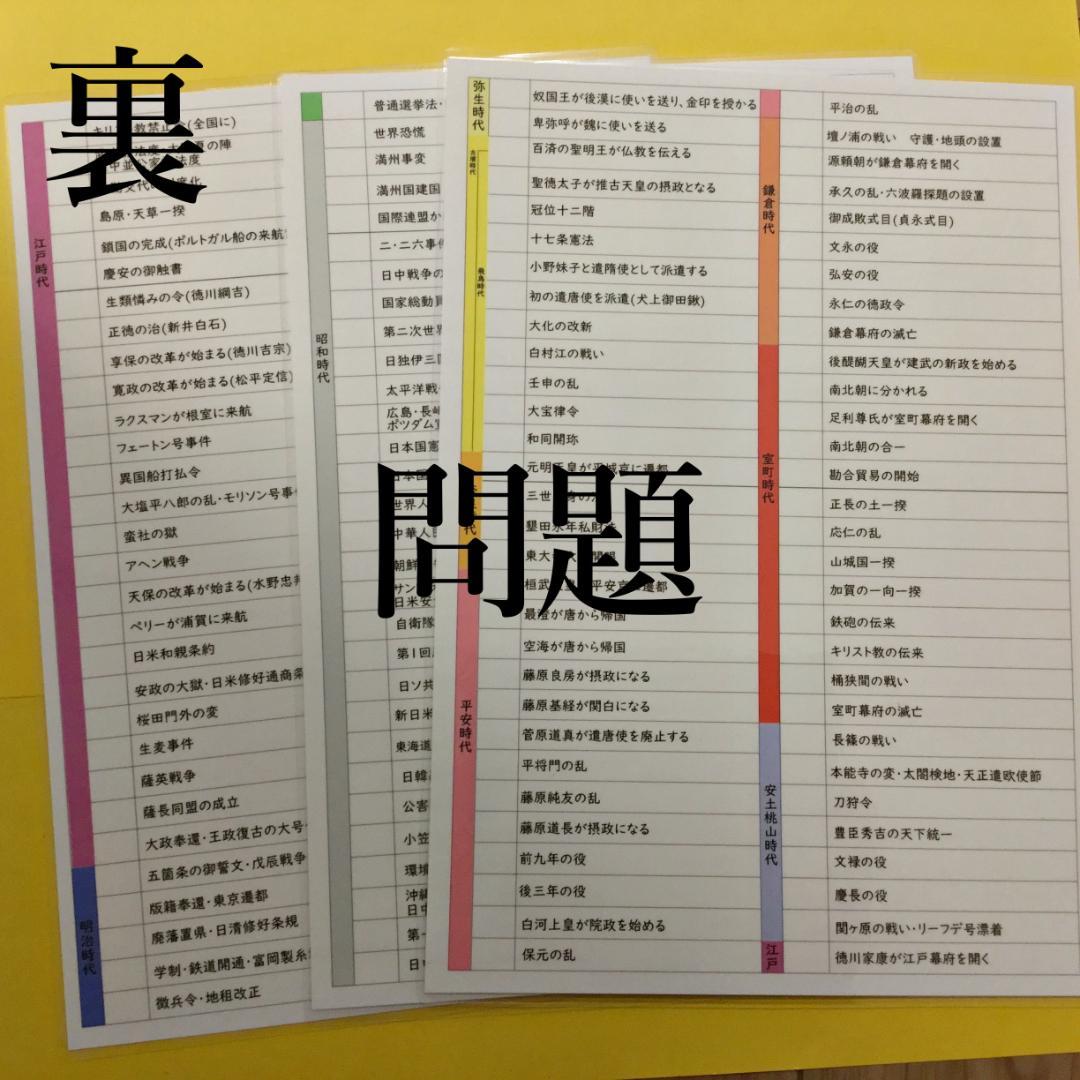 裏
問題
江戸時代
(全国に)
の陣
島原・天草一揆
鎖国の完成(ポルトガル船の来航
慶安の御触書
生類憐みの令(徳川綱吉)
正徳の治(新井白石)
享保の改革が始まる(徳川吉宗)
寛政の改革が始まる(松平定信)
ラクスマンが根室に来航
フェートン号事件
異国船打払令
大塩平八郎の乱・モリソン号事
蛮社の獄
アヘン戦争
天保の改革が始まる(水野忠
ペリーが浦賀に来航
日米和親条約
安政の大獄・日米修好通商条
桜田門外の変
生麦事件
薩英戦争
薩長同盟の成立
大政奉還・王政復古の大号
明治時代
五箇条の御誓文・戊辰戦争
版籍奉還・東京遷都
廃藩置県・日清修好条規
学制・鉄道開通・富岡製糸
徴兵令・地租改正
昭和時代
普通選挙法・
世界恐慌
満州事変
満州国建国
国際連盟か
二・二六事件
日中戦争の
国家総動員
第二次世界
日独伊三国
太平洋戦
広島・長崎
ポツダム宣
日本国憲
日本国
世界人
中華人民
朝鮮
サン
日米安
自衛隊
第1回
日ソ共
新日米
東海道
日韓
公害
小笠
環境
沖縄
日中
第一
日中
弥生時代
奴国王が後漢に使いを送り、金印を授かる
卑弥呼が魏に使いを送る
古墳時代
百済の聖明王が仏教を伝える
飛鳥時代
聖徳太子が推古天皇の摂政となる
冠位十二階
十七条憲法
小野妹子と遣隋使として派遣する
初の遣唐使を派遣(犬上御田鍬)
大化の改新
白村江の戦い
壬申の乱
大宝律令
和同開珎
元明天皇が平城京に遷都
三世一身の
墾田永年私財法
東大
桓武天皇 平安京に遷都
平安時代
最澄が唐から帰国
空海が唐から帰国
藤原良房が摂政になる
藤原基経が関白になる
菅原道真が遣唐使を廃止する
平将門の乱
藤原純友の乱
藤原道長が摂政になる
前九年の役
後三年の役
白河上皇が院政を始める
保元の乱
平治の乱
鎌倉時代
壇ノ浦の戦い 守護・地頭の設置
源頼朝が鎌倉幕府を開く
承久の乱・六波羅探題の設置
御成敗式目(貞永式目)
文永の役
弘安の役
永仁の徳政令
鎌倉幕府の滅亡
室町時代
後醍醐天皇が建武の新政を始める
南北朝に分かれる
足利尊氏が室町幕府を開く
南北朝の合一
勘合貿易の開始
正長の土一揆
応仁の乱
山城国一揆
加賀の一向一揆
鉄砲の伝来
キリスト教の伝来
桶狭間の戦い
室町幕府の滅亡
安土桃山時代
長篠の戦い
本能寺の変・太閤検地・天正遣欧使節
刀狩令
豊臣秀吉の天下統一
文禄の役
慶長の役
関ヶ原の戦い・リーフデ号漂着
江戸
徳川家康が江戸幕府を開く